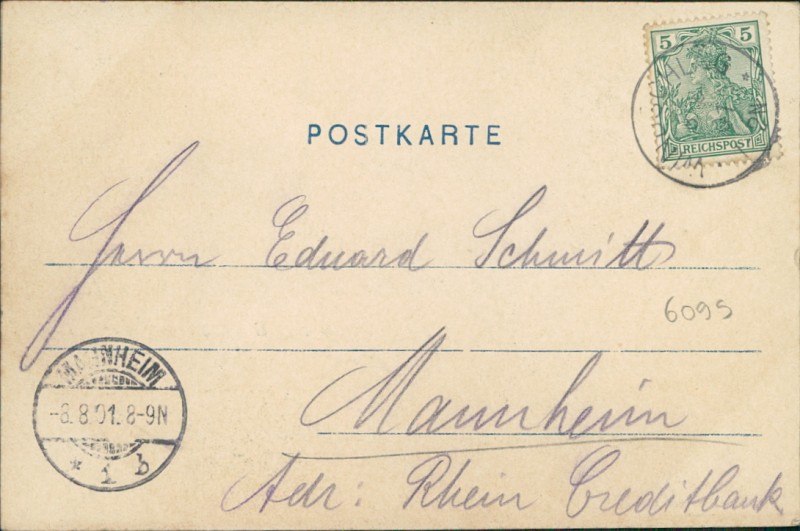 5 5
REICHSPOST
POSTKARTE
Herrn Eduard Schmitt
6095
Mannheim
MANNHEIM
-6.8.01.8-9N
* 1 b
Adr: Rhein Creditbank